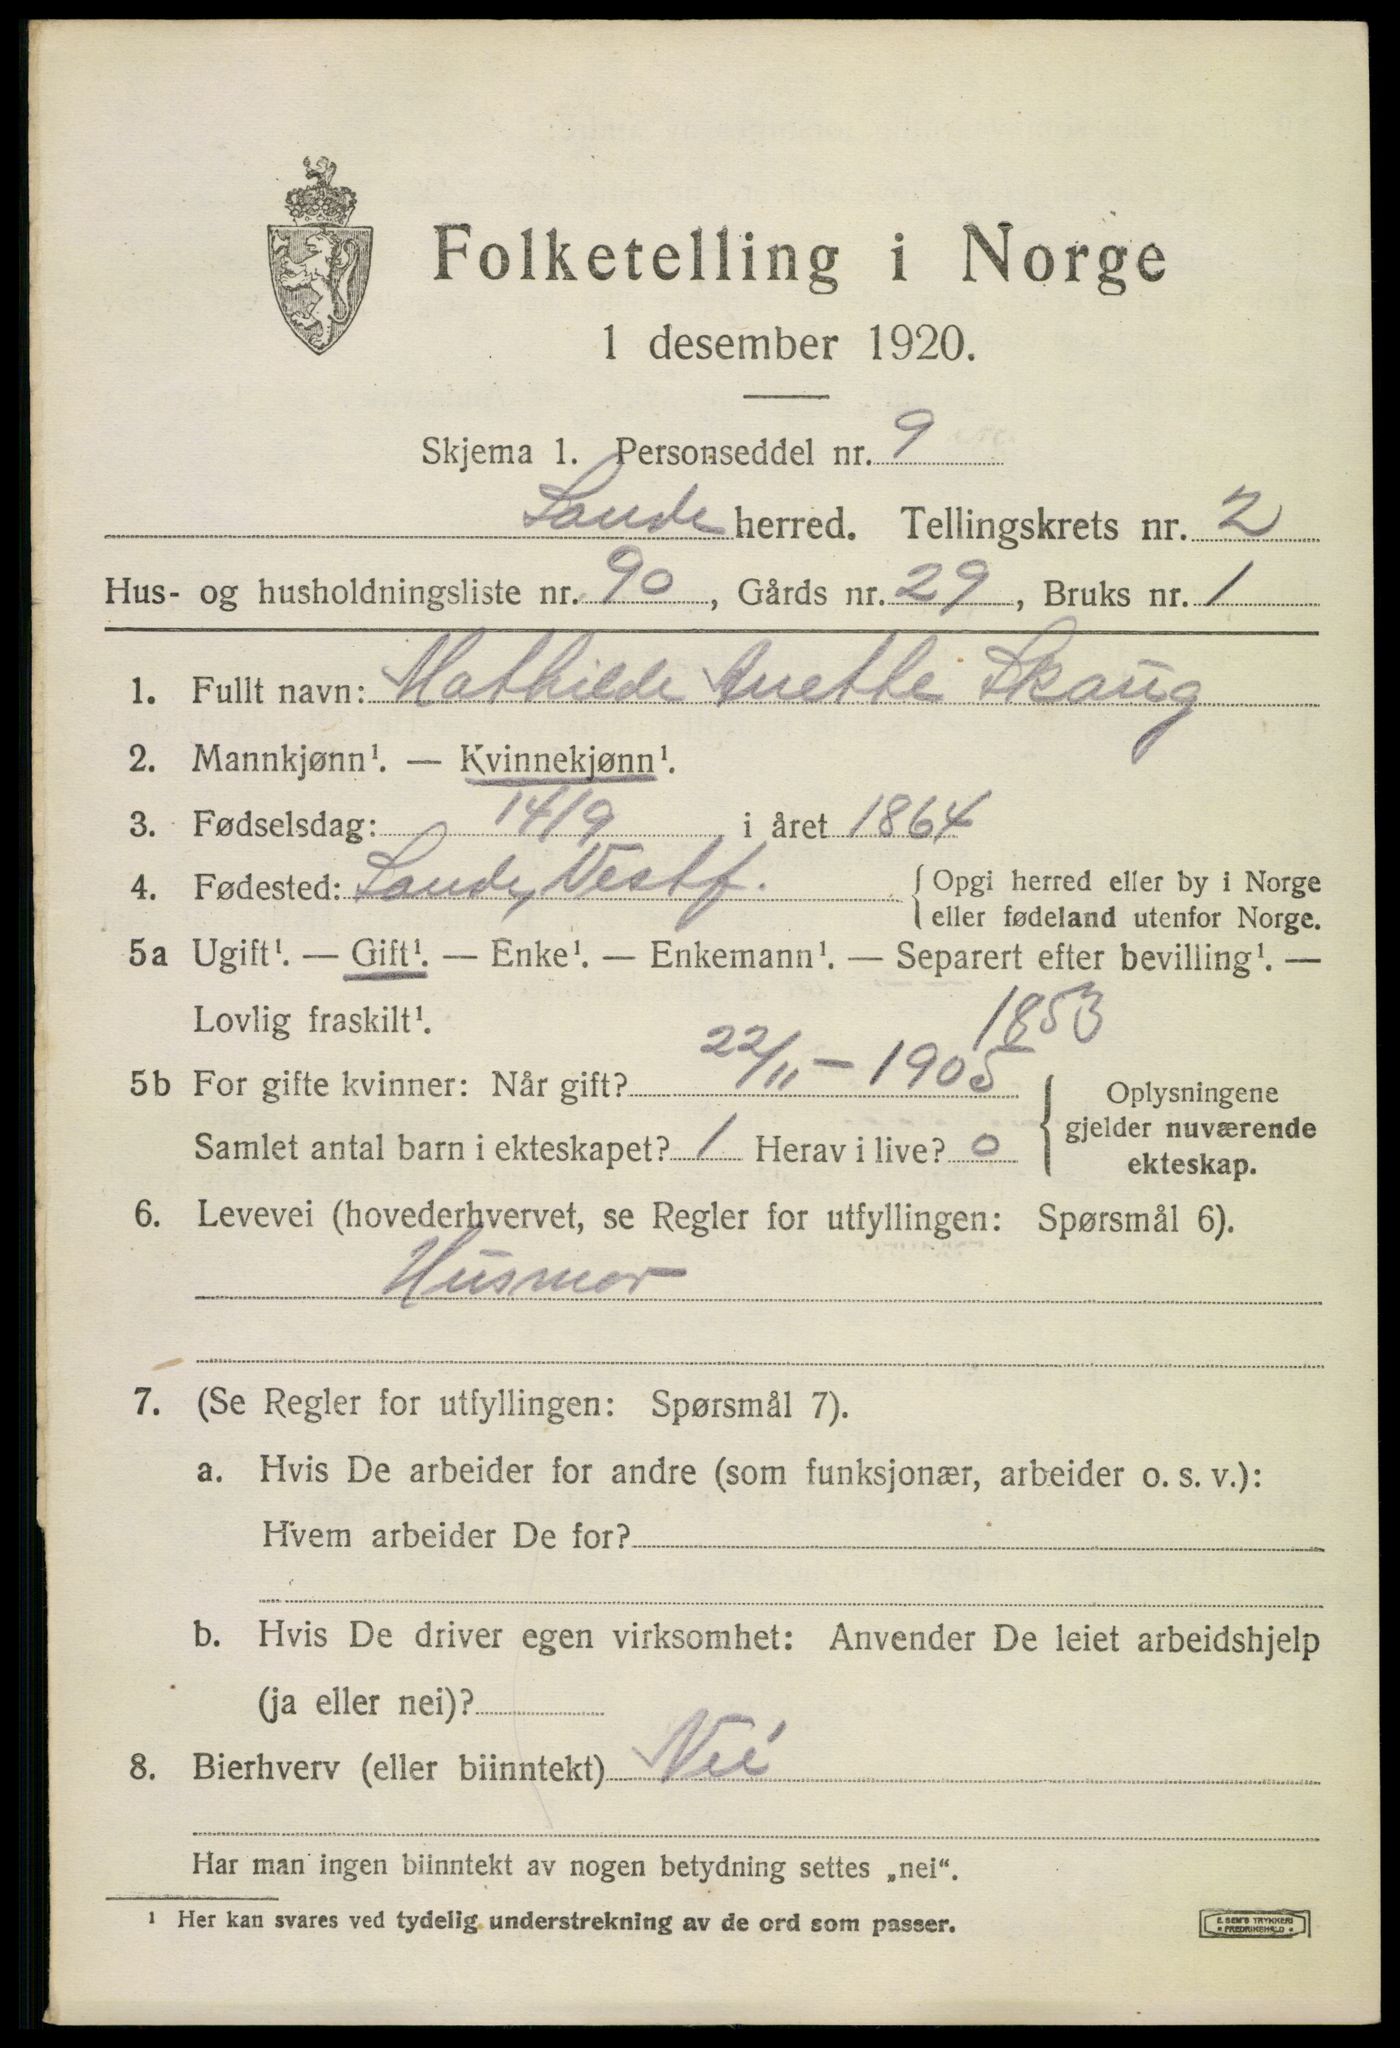 Folketelling i Norge
1 desember 1920.
Skjema 1. Personseddel nr. 9
Sande herred. Tellingskrets nr. 2
Hus- og husholdningsliste nr. 90, Gårds nr. 29, Bruks nr. 1
1. Fullt navn: Mathilde Anette Skaug
2. Mannkjønn¹. — Kvinnekjønn¹.
3. Fødselsdag: 14/9 i året 1864
4. Fødested: Sande, Vestf. { Opgi herred eller by i Norge
eller fødeland utenfor Norge.
5a Ugift¹. — Gift¹. — Enke¹. — Enkemann¹. — Separert efter bevilling¹. —
Lovlig fraskilt¹.
1853
5b For gifte kvinner: Når gift? 22/11 – 1905
Samlet antal barn i ekteskapet? 1 Herav i live? 0
Oplysningene
gjelder nuværende
ekteskap.
6. Levevei (hovederhvervet, se Regler for utfyllingen: Spørsmål 6).
Husmor
7. (Se Regler for utfyllingen: Spørsmål 7).
a. Hvis De arbeider for andre (som funksjonær, arbeider o. s. v.):
Hvem arbeider De for?
b. Hvis De driver egen virksomhet: Anvender De leiet arbeidshjelp
(ja eller nei)?
8. Bierhverv (eller biinntekt) Nei
Har man ingen biinntekt av nogen betydning settes „nei“.
¹ Her kan svares ved tydelig understrekning av de ord som passer.
E. SEM'S TRYKKERI
FREDRIKSHALD